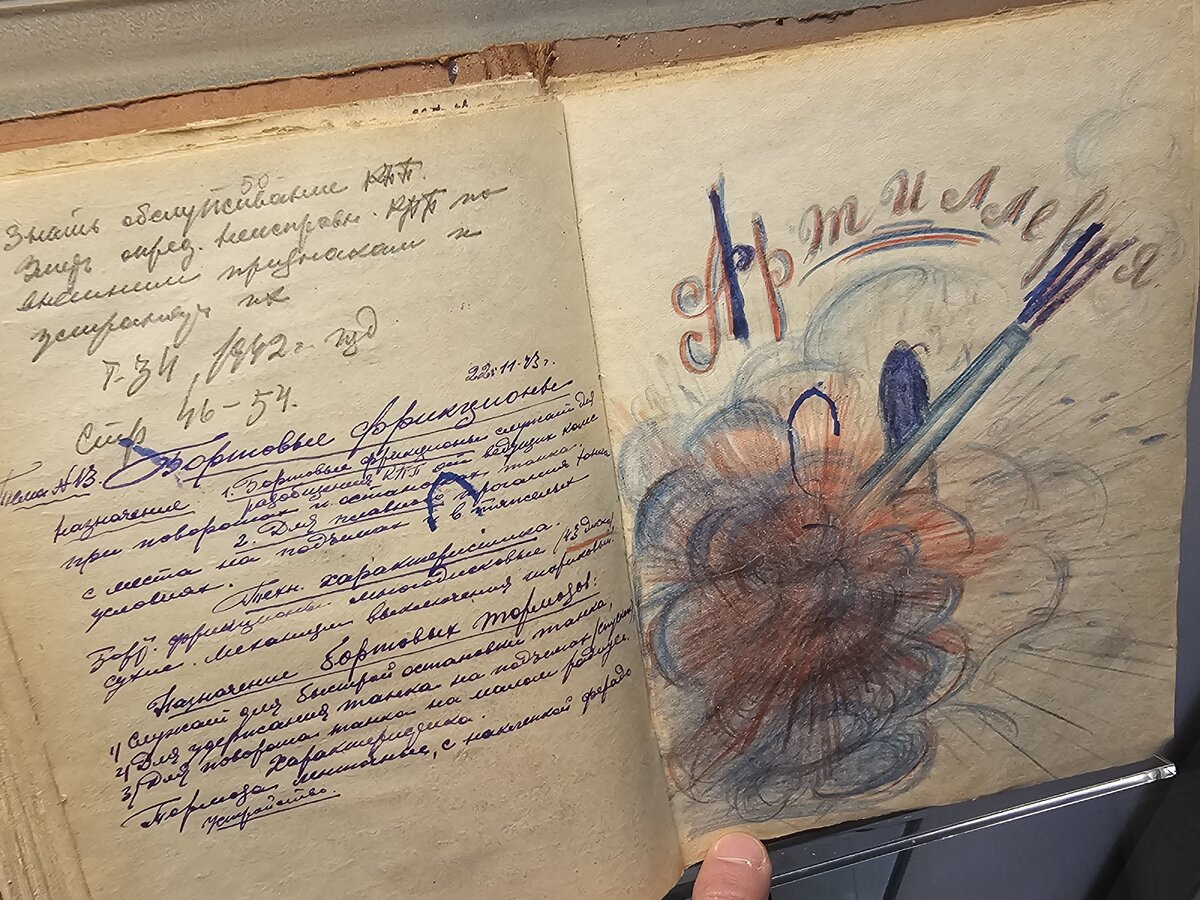 50
Знать обслуживание КПП.
Уметь опред. неисправн. КПП по
внешним признакам и
устранять их
Т-34, 1942 г. изд
Стр 46-54.
22-11-43 г.
Тема №13 Бортовые фрикционы
назначение 1. Бортовые фрикционы служат для
разобщения КПП от ведущих колес
при поворотах и остановках танка.
2. Для плавного трогания танка
с места на подъемах и в тяжелых
условиях.
Техн. характеристика.
Борт. фрикционы многодисковые (43 диска)
сухие. Механизм выключения шариковый.
Назначение бортовых тормозов:
1) Служат для быстрой остановки танка,
2) Для удержания танка на подъемах (спусках)
3) Для поворота танка на малом радиусе.
Характеристика.
Тормоза ленточные, с накленкой ферадо
Устройство.
Артиллерия.